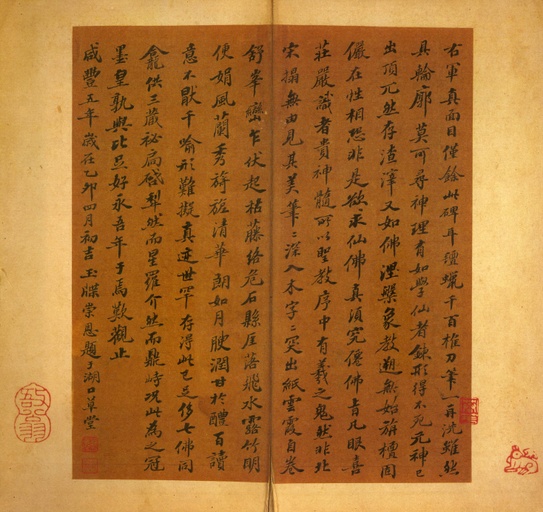 右军真面目僅餘此碑耳氊蠟千百椎刀筆一再洗雖然
具輪廓莫可尋神理有如學仙者錬形得不死元神已
出頂兀然存渣滓又如佛涅槃象教遡無始旃檀固
儼在性相恐非是欲求仙佛真須究僊佛旨凡眼喜
莊嚴識者貴神髓所以聖教序中有羲之鬼然非北
宋搨無由見其美筆二深入木字二突出紙雲霞自卷
舒峯巒乍伏起枯藤絡危石縣厓落飛水露竹明
便娟風蘭秀旖旎清華朗如月腴潤甘於醴百讀
意不猒千喻形難擬真迹世罕存得此已足侈七佛同
龕供三嚴祕扃啓犁然而星羅介然而鼎峙况此為之冠
墨皇孰與比旦好永吾年于焉歎觀止
咸豐五年歲在乙卯四月初吉玉牒崇恩題于湖口草堂